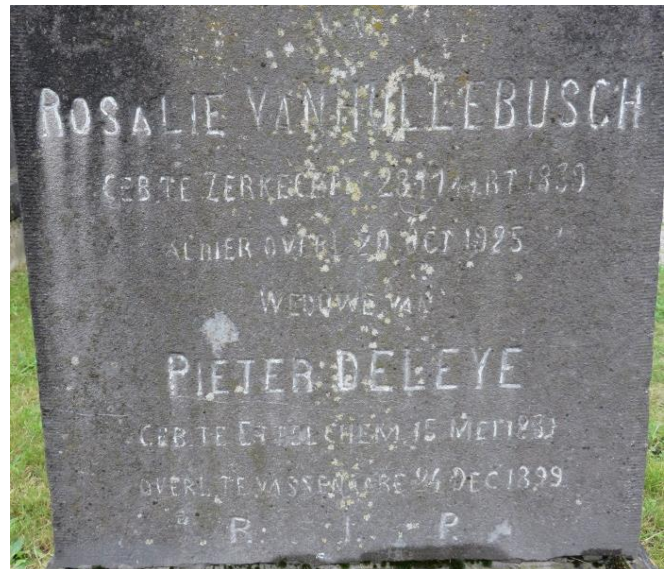 ROSALIE VANHULLEBUSCH
GEB. TE ZERKEGEM 28 MAART 1839
ALHIER OVERL. 20 OCT 1925
WEDUWE VAN
PIETER DELEYE
GEB. TE 15 MEI
OVERL. TE VASSENARE 24 DEC 1899
R. I. P.